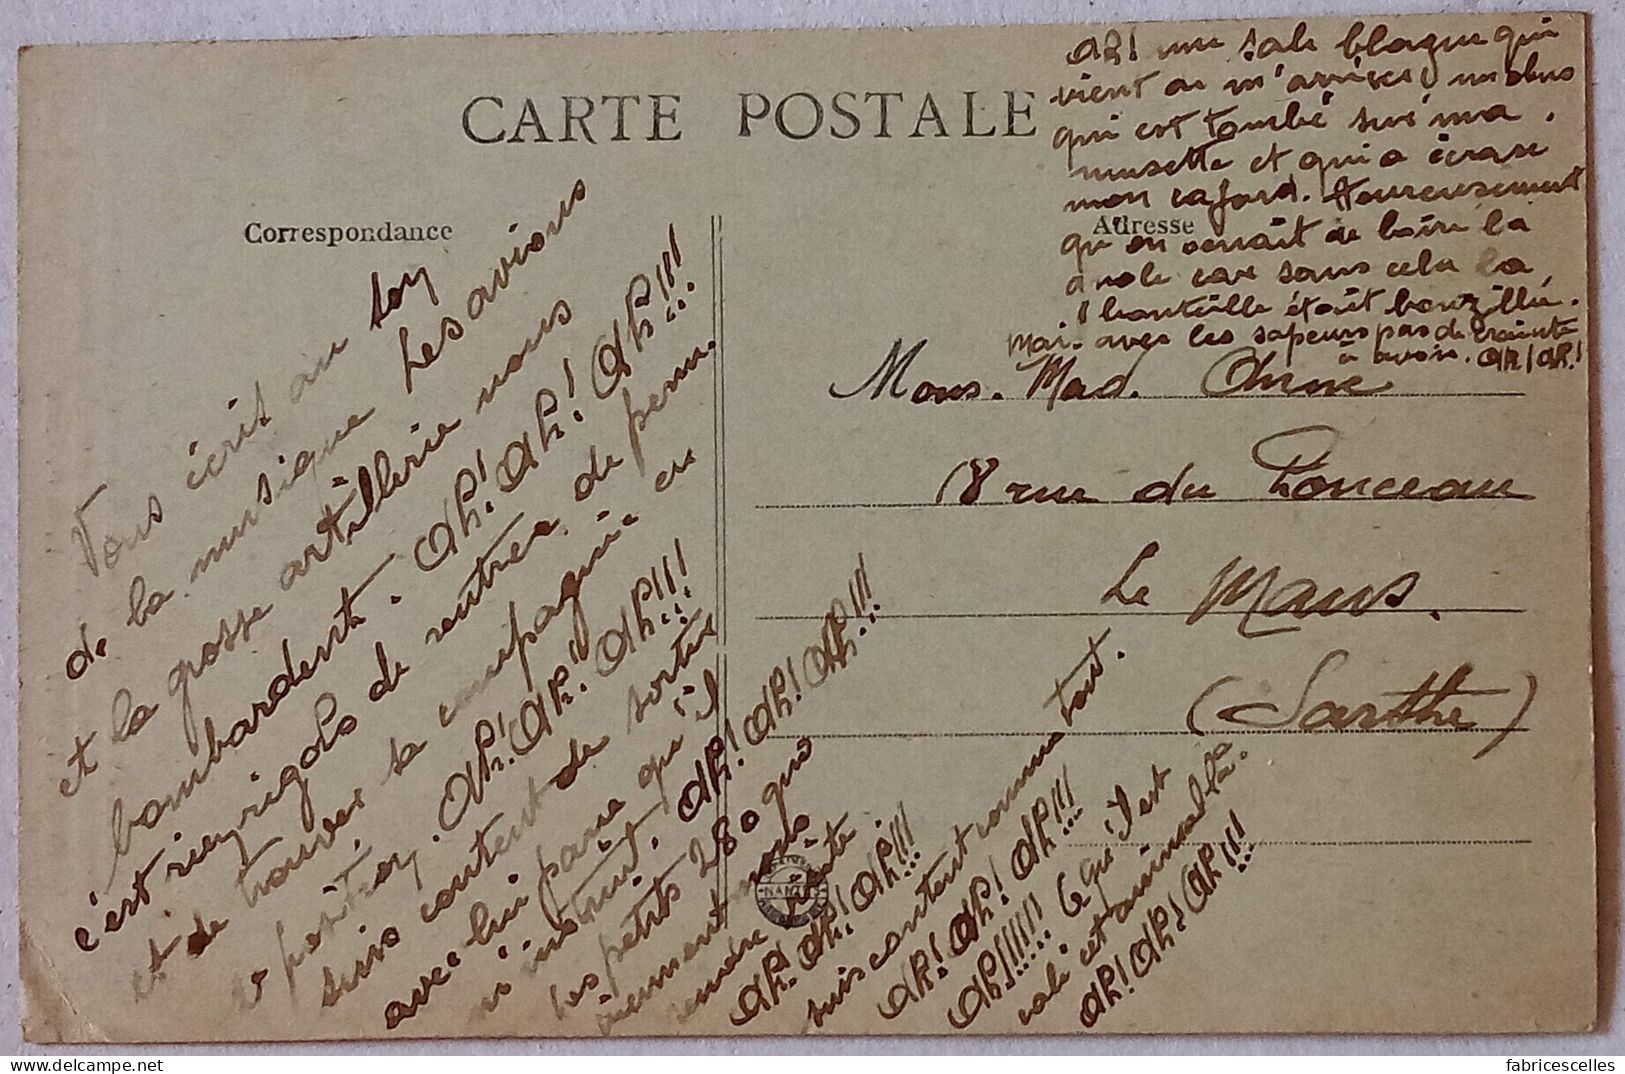 CARTE POSTALE
Correspondance
Adresse
Vous écrit au son
de la musique Les avions
et la grosse artillerie nous
bombardent. Ah! Ah! Ah! Ah!!!
c'est rigolo de rentrer de perm.
et de trouver sa compagnie en
position. Ah! Ah! Ah! Ah!!!
suis content de sortir
avec lui parce qu'il
m'instruit. Ah! Ah! Ah!!!
les petits 280 qui
viennent nous
rendre visite
Ah! Ah! Ah! Ah!!!
suis content comme tout.
Ah! Ah! Ah! Ah!!!
Ah!!!!!! Ce qu'il est
cet animal là.
Ah! Ah! Ah! Ah!!!
Ah! une sale blague qui
vient de m'arriver, un obus
qui est tombé sur ma
musette et qui a écrasé
mon cafard. Heureusement
qu'on venait de boire la
gnole car sans cela la
bouteille était bouzillée.
Mai. avec les sapeurs pas de crainte
à avoir. Ah! Ah!
Mons. Mad.
18 rue du Ronceau
Le Mans.
(Sarthe)
NANTES
fabricescelles